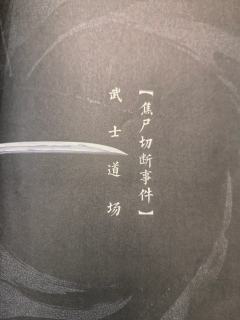 【焦尸切断事件】
武士道场